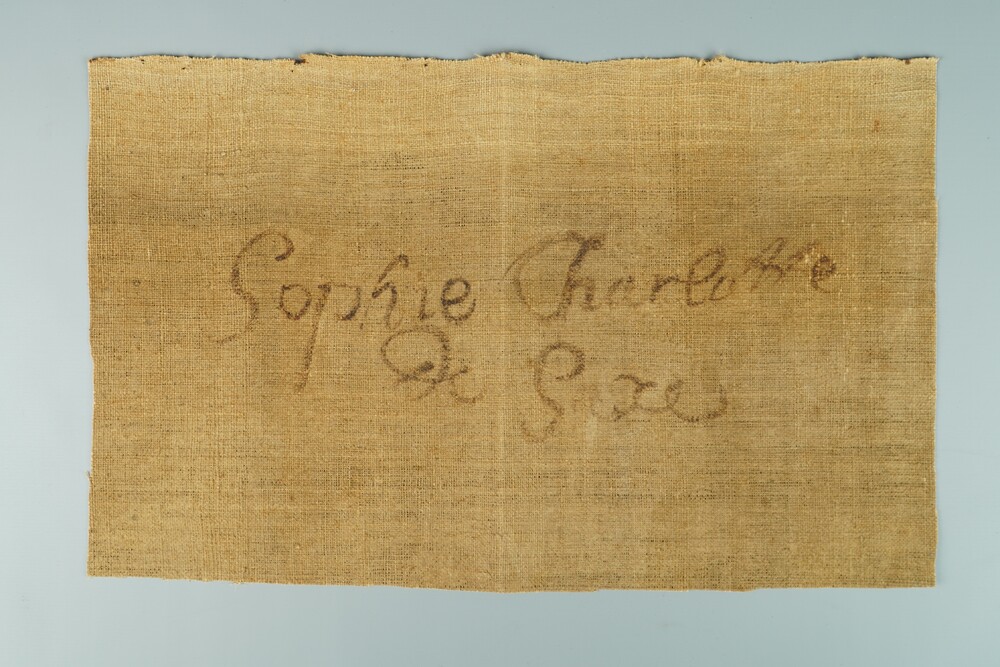 Sophie Charlotte
De Saxe